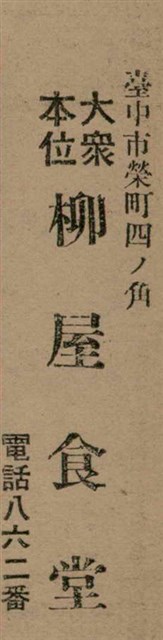 臺中市榮町四ノ角
大衆本位
柳屋食堂
電話八六二番